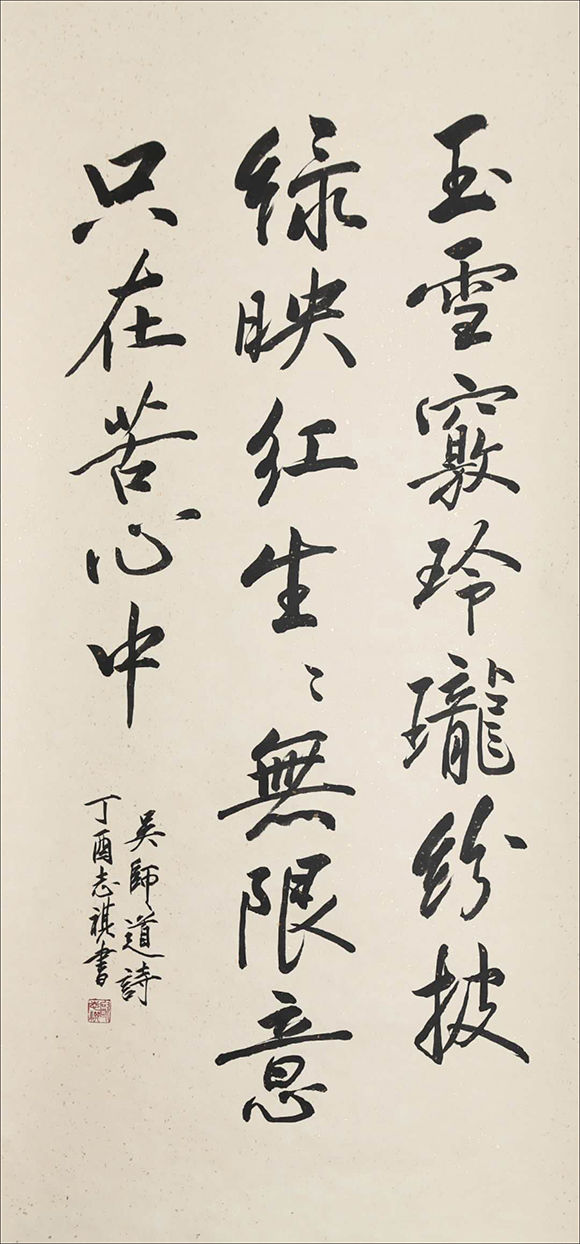 玉雪竅玲瓏紛披
绿映红生〻無限意
只在苦心中
吳師道詩
丁酉志祺書